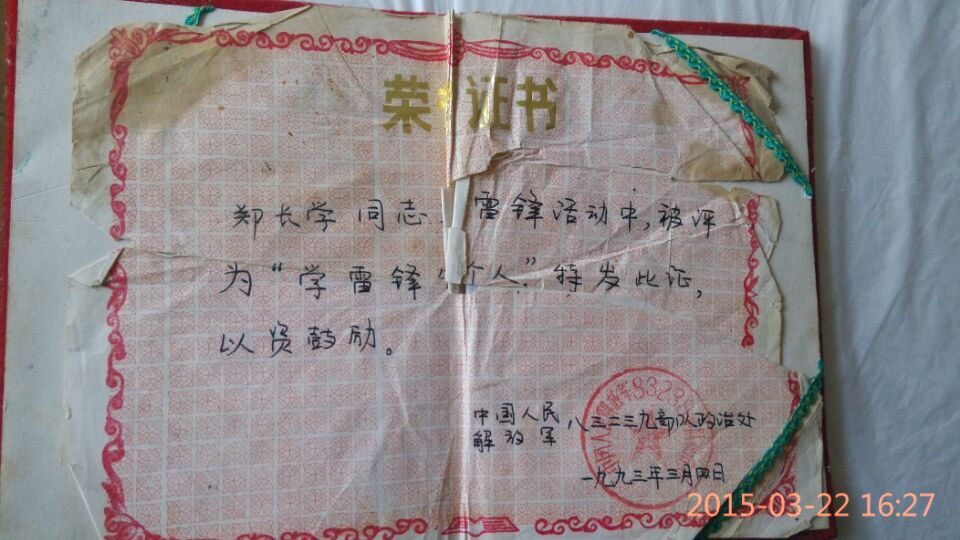 荣 证书
郑长学同志 雷锋活动中,被评
为“学雷锋 个人”特发此证,
以资鼓励。
中国人民
解放军
八三二三九部队政治处
一九九三年三月四日
2015-03-22 16:27